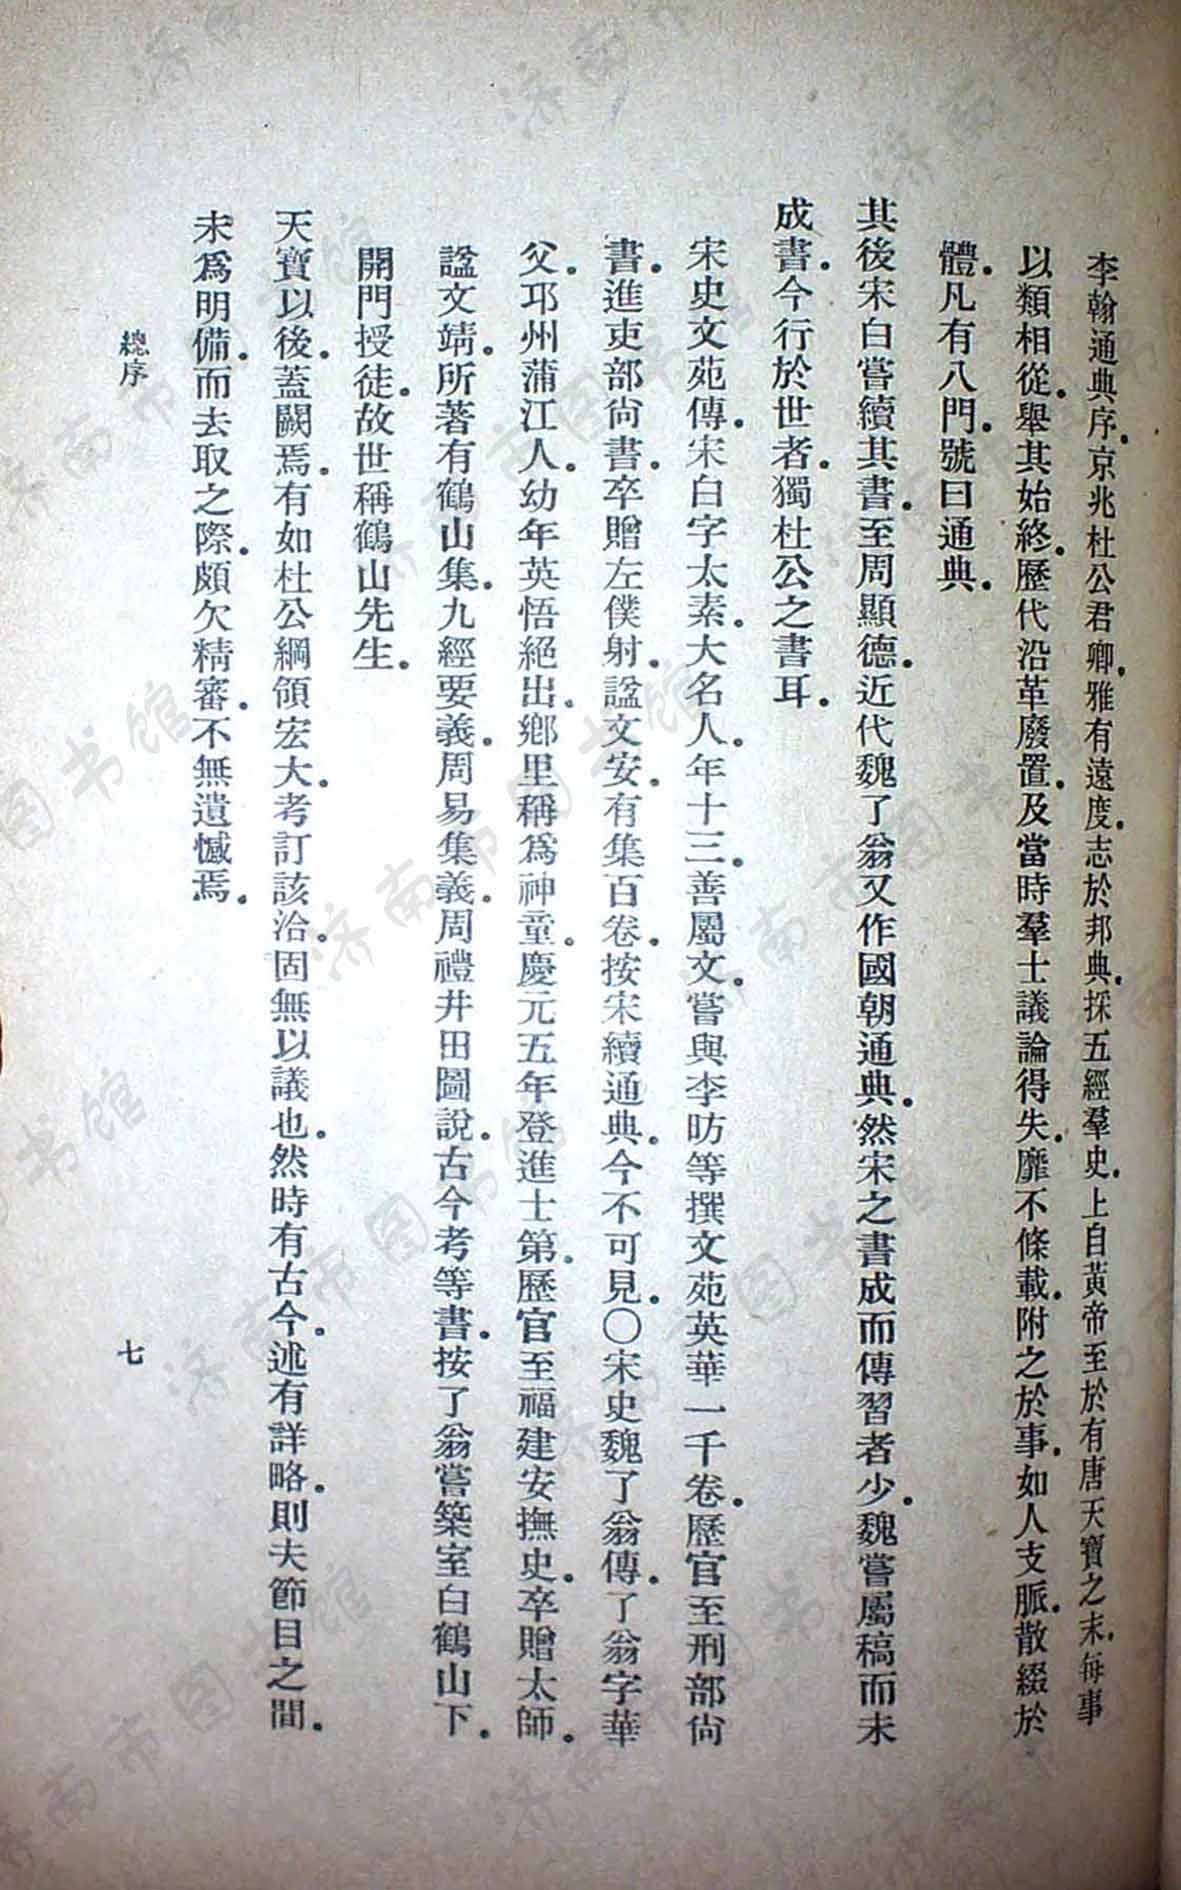 李翰通典序.京兆杜公君卿.雅有遠度.志於邦典.採五經羣史.上自黃帝至於有唐天寶之末.每事
以類相從.舉其始終.歷代沿革廢置.及當時羣士議論得失.靡不條載.附之於事.如人支脈.散綴於
體.凡有八門.號曰通典.
其後宋白嘗續其書.至周顯德.近代魏了翁又作國朝通典.然宋之書成而傳習者少.魏嘗屬稿而未
成書.今行於世者.獨杜公之書耳.
宋史文苑傳.宋白字太素.大名人.年十三.善屬文.嘗與李昉等撰文苑英華一千卷.歷官至刑部尙
書.進吏部尙書.卒贈左僕射.諡文安.有集百卷.按宋續通典.今不可見.○宋史魏了翁傳.了翁字華
父.邛州蒲江人.幼年英悟絕出.鄉里稱爲神童.慶元五年登進士第.歷官至福建安撫史.卒贈太師.
諡文靖.所著有鶴山集.九經要義.周易集義.周禮井田圖說.古今考等書.按了翁嘗築室白鶴山下.
開門授徒.故世稱鶴山先生.
天寶以後.蓋闕焉.有如杜公綱領宏大.考訂該洽.固無以議也.然時有古今.述有詳略.則夫節目之間.
未爲明備.而去取之際.頗欠精審.不無遺憾焉.
總序
七
济南市图书馆
济南市图书馆
济南市图书馆
济南市图书馆
济南市图书馆